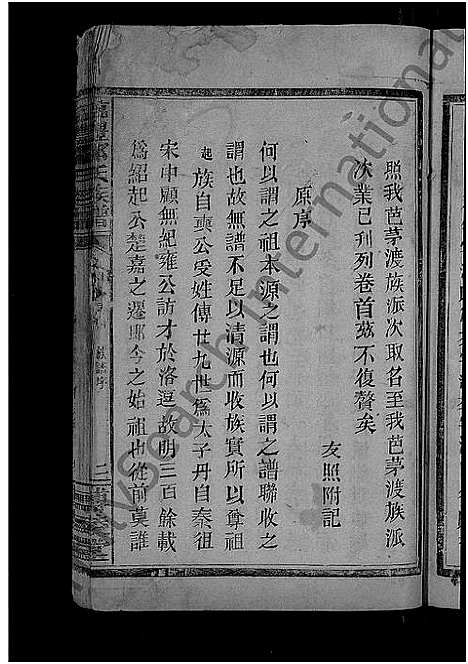 照我芭茅渡族派次取名至我芭茅渡族派
次業已刋列卷首茲不復贅矣
友照附記
原序
何以謂之祖本源之謂也何以謂之譜聯收之
謂也故無譜不足以清源而收族實所以尊祖
起族自奭公受姓傳廿九世爲太子丹自秦徂
宋中顧無紀雍公訪才於洛逗故明三百餘載
爲紹起公楚嘉之遷即今之始祖也從前莫誰
氏族譜
族譜序
二
MySearch International